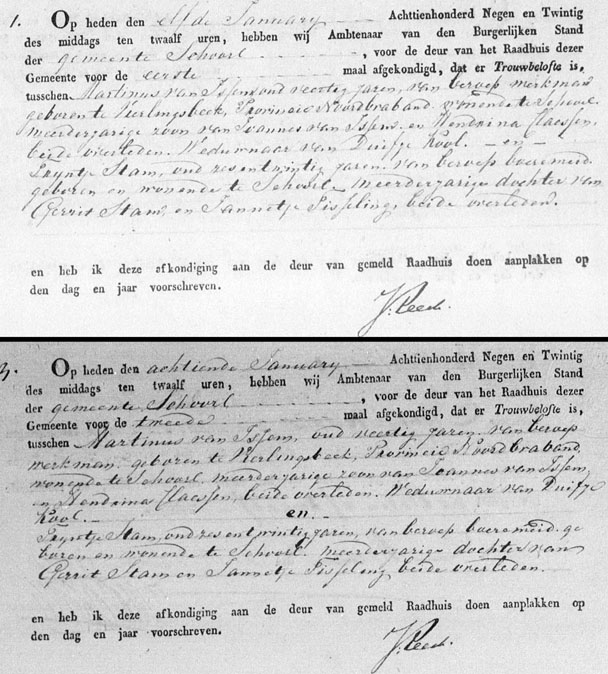 1. Op heden den elfde January Achttienhonderd Negen en Twintig
des middags ten twaalf uren, hebben wij Ambtenaar van den Burgerlijken Stand
der gemeente Schoorl , voor de deur van het Raadhuis dezer
Gemeente voor de eerste maal afgekondigd, dat er Trouwbelofte is,
tusschen Martinus van Issem oud veertig jaren, van beroep werkman
geboren te Vierlingsbeek, Provincie Noordbraband. wonende te Schoorl
meerderjarige zoon van Joannes van Issem. en Hendrina Claessen,
beide overleden. Weduwnaar van Duifje Kool. – en –
Tryntje Stam, oud zes entwintig jaren. van beroep boeremeid.
geboren en wonende te Schoorl. meerderjarige dochter van
Gerrit Stam, en Jannetje Tisseling, beide overleden.
en heb ik deze afkondiging aan de deur van gemeld Raadhuis doen aanplakken op
den dag en jaar voorschreven.
3. Op heden den achtiende January Achttienhonderd Negen en Twintig
des middags ten twaalf uren, hebben wij Ambtenaar van den Burgerlijken Stand
der gemeente Schoorl , voor de deur van het Raadhuis dezer
Gemeente voor de tweede maal afgekondigd, dat er Trouwbelofte is,
tusschen Martinus van Issem, oud veertig jaren, van beroep
werkman. geboren te Vierlingsbeek, Provincie Noordbraband,
wonende te Schoorl, meerderjarige zoon van Joannes van Issem,
en Hendrina Claessen, beide overleden. Weduwnaar van Duifje
Kool. en
Tryntje Stam, oud zes entwintig jaren, van beroep boeremeid. ge
boren en wonende te Schoorl. meerderjarige dochter van
Gerrit Stam en Jannetje Tisseling beide overleden.
en heb ik deze afkondiging aan de deur van gemeld Raadhuis doen aanplakken op
den dag en jaar voorschreven.